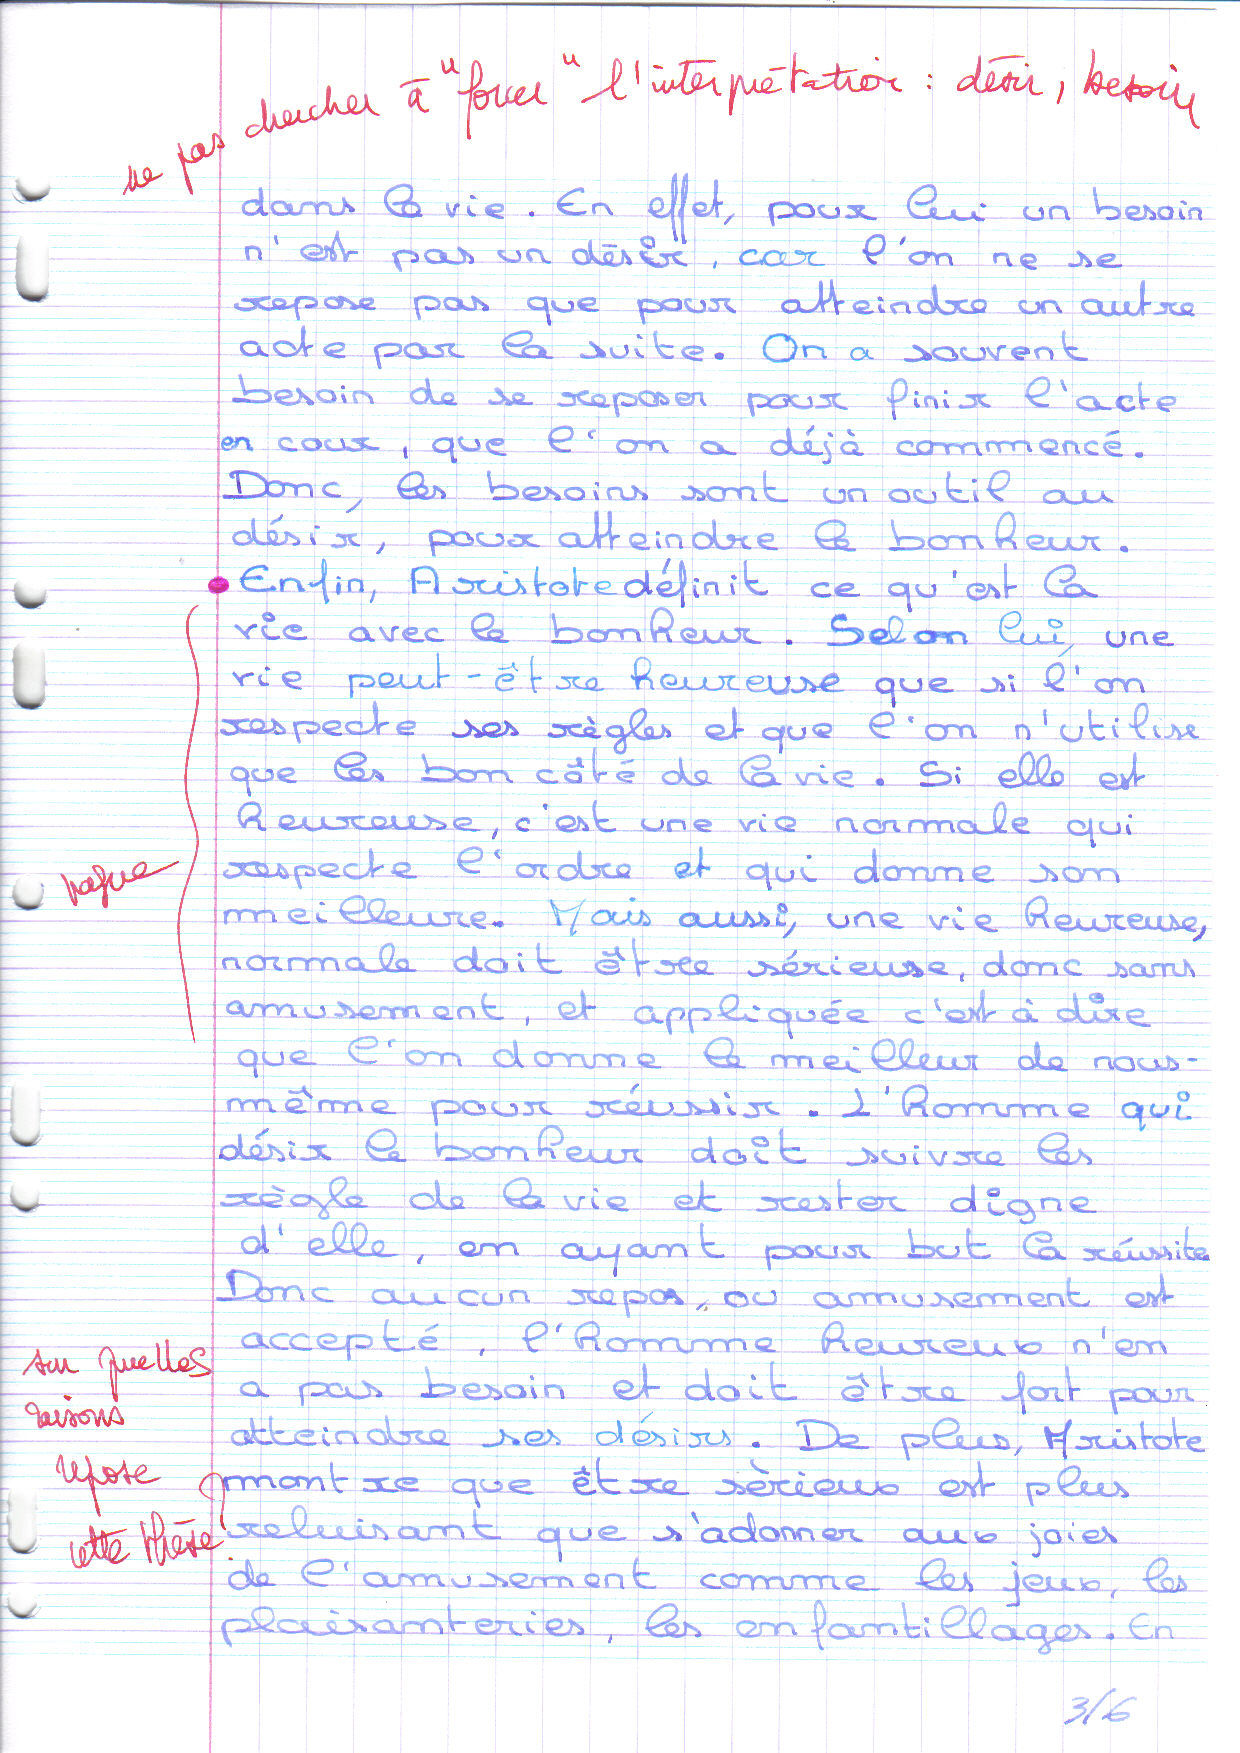 ne pas chercher à "forcer" l'interprétation : désir, besoin
dans la vie. En effet, pour lui un besoin
n'est pas un désir, car l'on ne se
repose pas que pour atteindre un autre
acte par la suite. On a souvent
besoin de se reposer pour finir l'acte
en cour, que l'on a déjà commencé.
Donc, les besoins sont un outil au
désir, pour atteindre le bonheur.
• Enfin, Aristote définit ce qu'est la
vie avec le bonheur. Selon lui, une
vie peut-être heureuse que si l'on
respecte ses règles et que l'on n'utilise
que les bon côté de la vie. Si elle est
heureuse, c'est une vie normale qui
vague
respecte l'ordre et qui donne son
meilleure. Mais aussi, une vie heureuse,
normale doit être sérieuse, donc sans
amusement, et appliquée c'est à dire
que l'on donne le meilleur de nous-
même pour réussir. L'homme qui
désir le bonheur doit suivre les
règle de la vie et rester digne
d'elle, en ayant pour but la réussite
Donc aucun repos, ou amusement est
accepté, l'homme heureux n'en
a pas besoin et doit être fort pour
atteindre ses désirs. De plus, Aristote
montre que être sèrieux est plus
reluisant que s'adonner aux joies
de l'amusement comme les jeux, les
plaisanteries, les enfantillages. En
sur quelles
raisons
repose
cette thèse
3/6